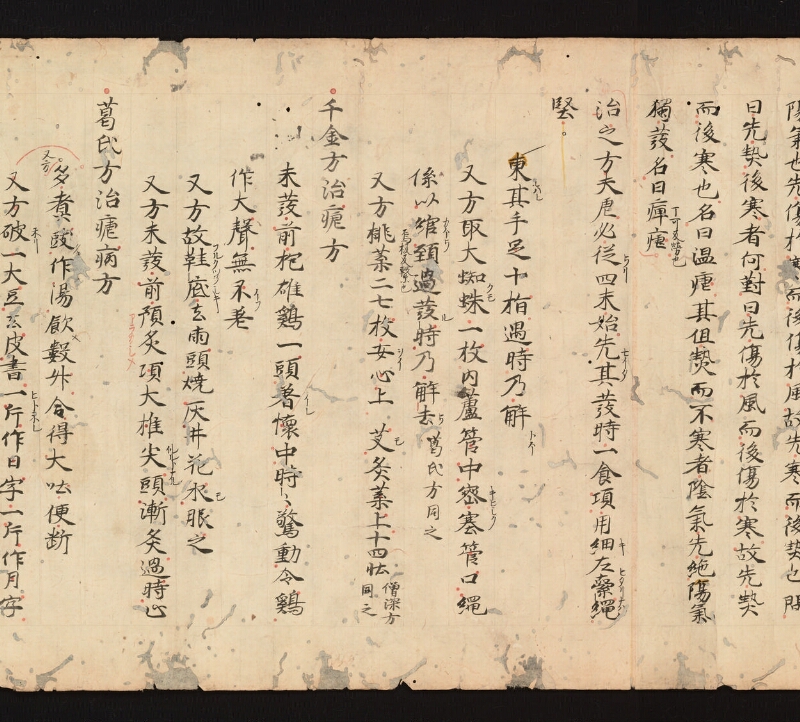 陽氣也先傷於寒而後傷於風故先寒而後𤍠也問
曰先𤍠後寒者何對曰先傷於風而後傷於寒故先𤍠
而後寒也名曰温瘧其但𤍠而不寒者陰氣先絶陽氣
獨發名曰癉瘧
治之方夭虐必従四末始先其發時一食項用細左索縄
堅
束其手足十指過時乃解
又方取大蜘蛛一枚内蘆管中密塞管口縄
係以綰頚過發時乃解去 葛氏方同之
又方桃葉二七枚安心上 艾灸葉上十四壮 僧深方同之
千金方治瘧方
未發前把雄鶏一頭著懐中時々驚動令鶏
作大聲無不差
又方故鞋底去兩頭燒灰井花水服之
又方未發前預灸項大椎尖頭漸灸過時止
葛氏方治瘧病方
又方 多煮豉作湯飲數升令得大吐便断
又方破一大豆去皮書一斤作日字一斤作月字